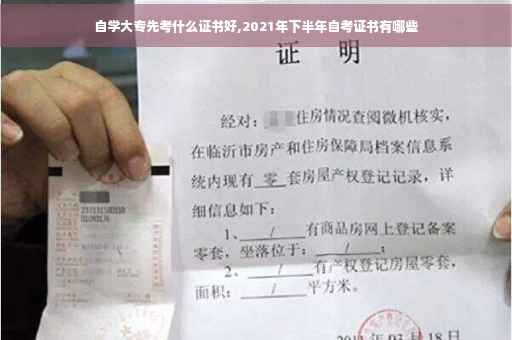 自学大专先考什么证书好,2021年下半年自考证书有哪些
证 明
经对: 住房情况查阅微机核实,
在临沂市房产和住房保障局档案信息系
统内现有 零 套房屋产权登记记录, 详
细信息如下:
1、 / 有商品房网上登记备案
零套, 坐落位于: / ;
2、 / 有产权登记房屋零套,
面积: / 平方米。
03月18日